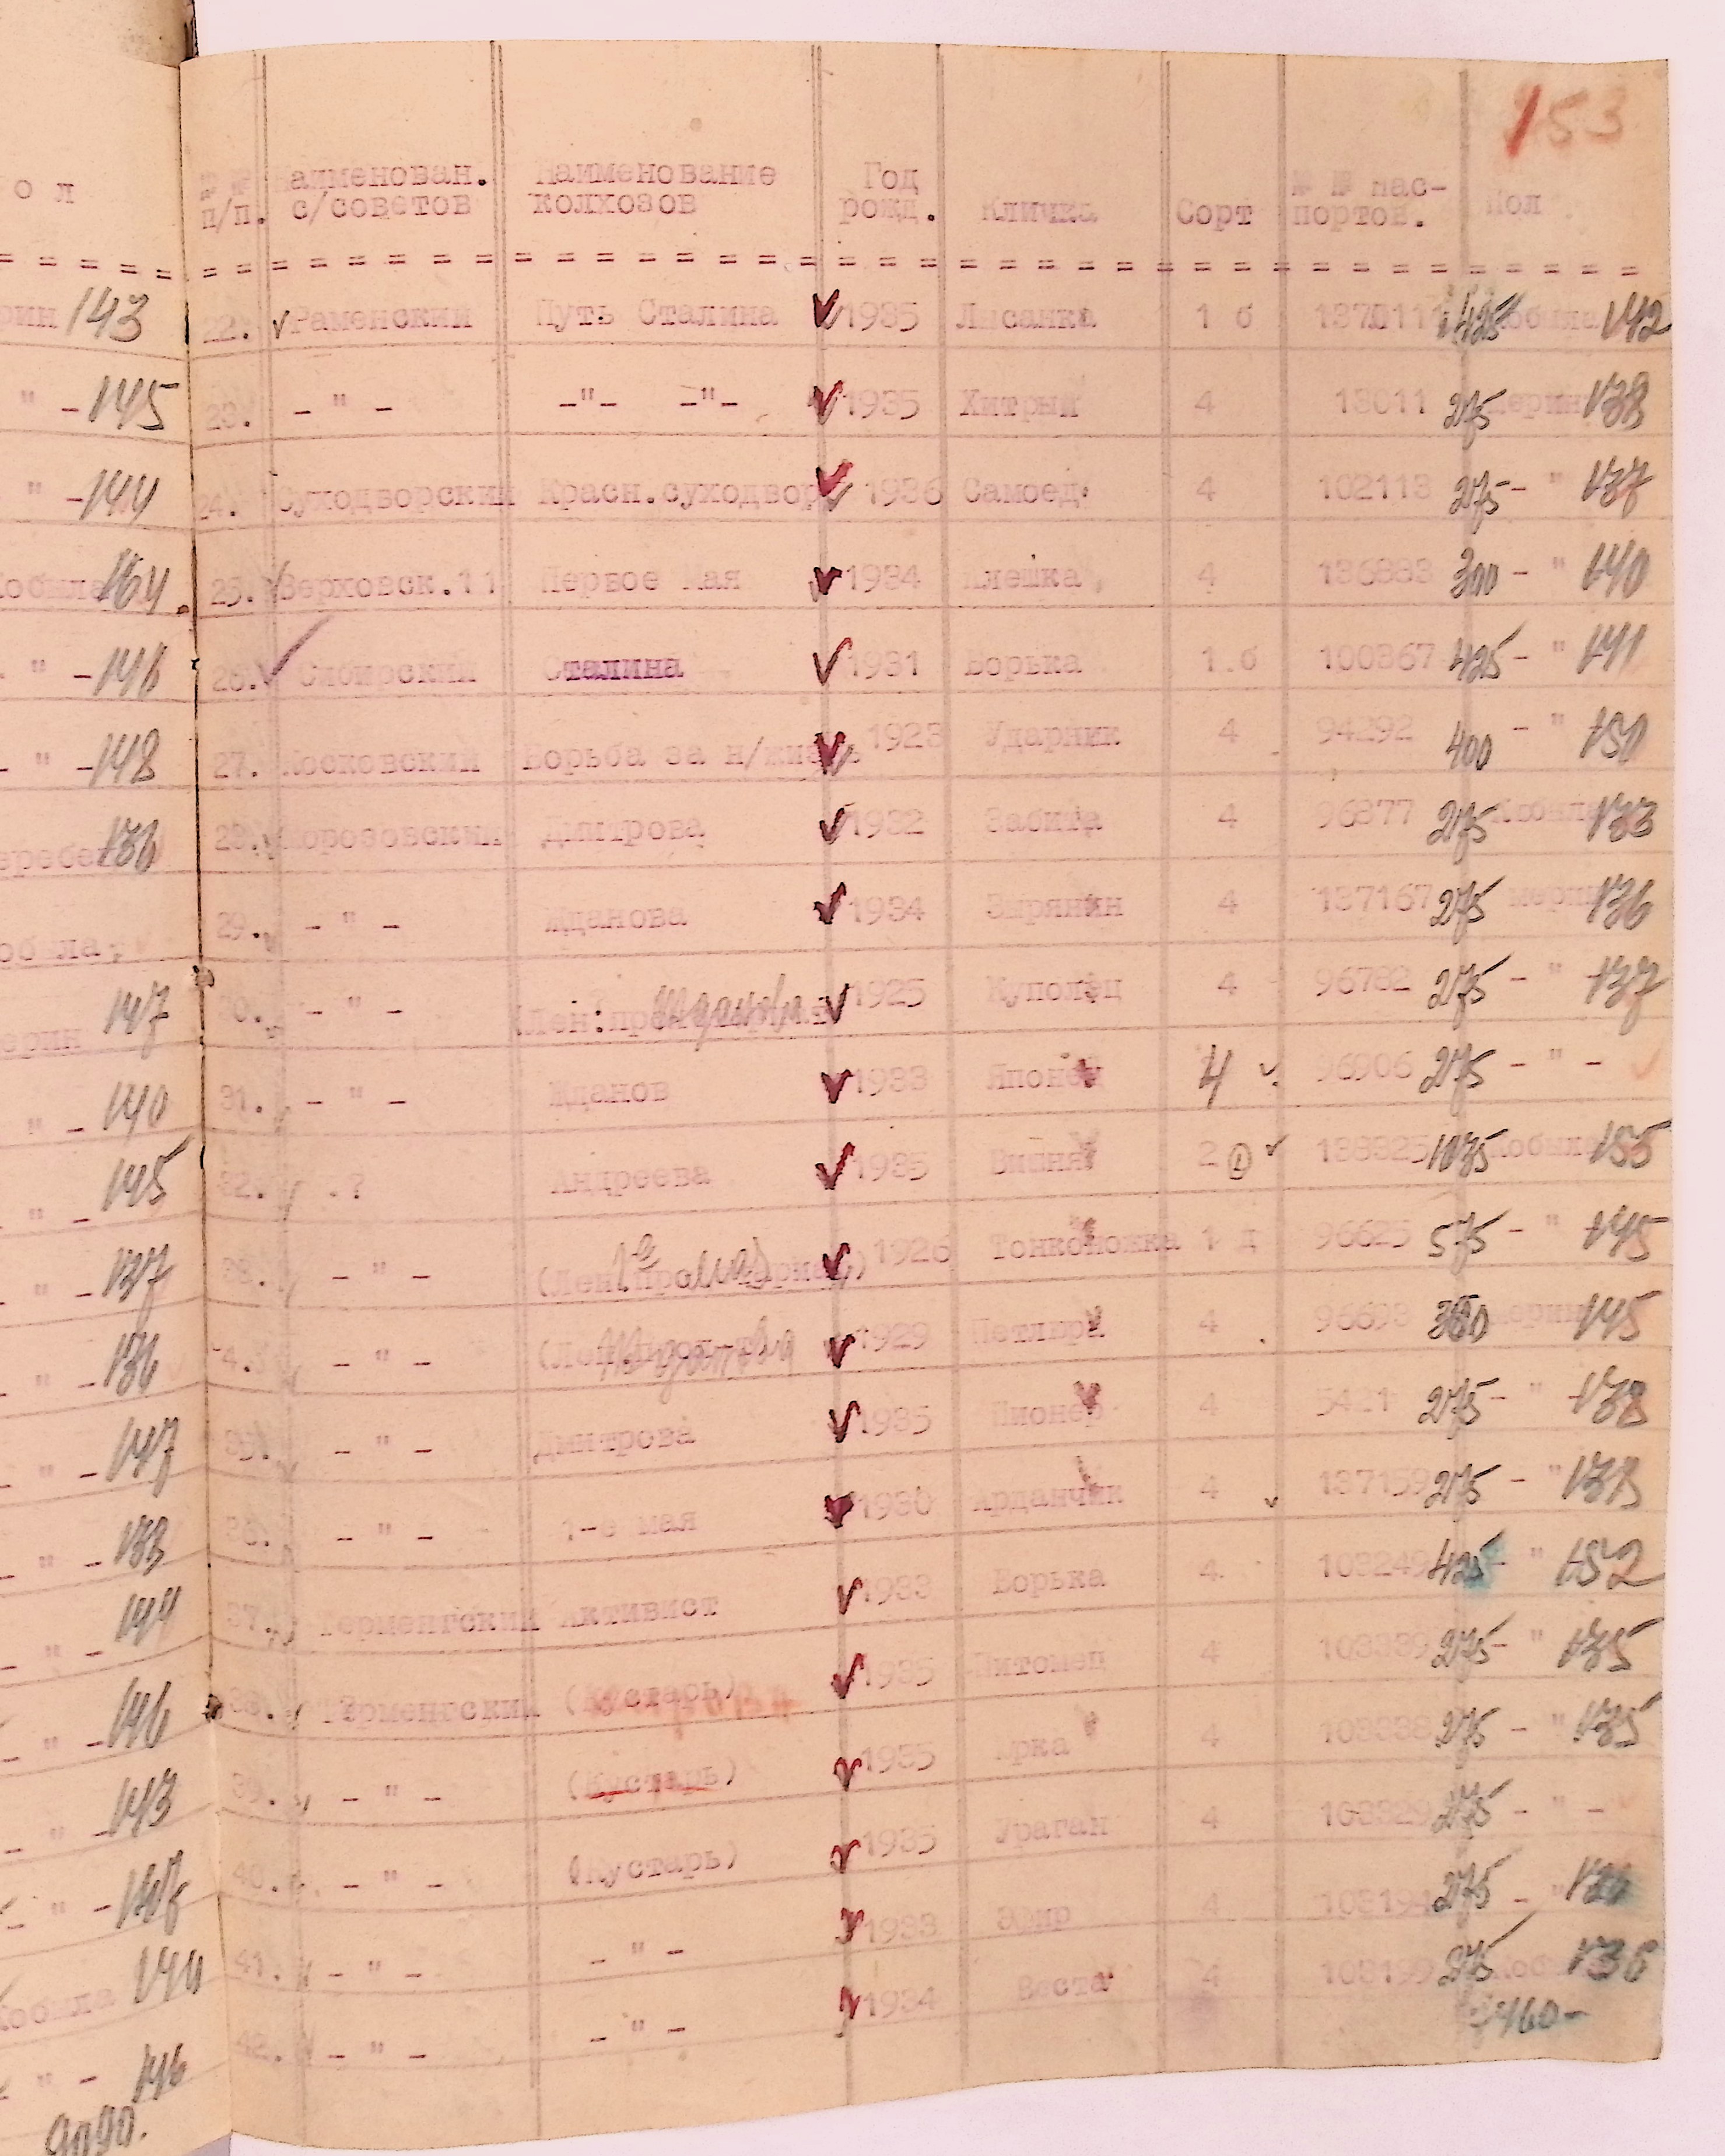 о л
рин 143
" - 145
" - 144
Кобыла 164.
- " - 146
- " - 148
136
обыла,
ерин 147
" - 140
" - 145
- " - 137
- " - 136
- " - 147
- " - 133
- " - 144
- " - 146
- " - 143
- " -
Кобыла 144
" - 146
9090.
153
№ № п/п. Наименован. с/советов Наименование колхозов Год рожд. Кличка Сорт № № пас-портов. Пол
22. Раменский Путь Сталина 1935 Лысанка 1 б 425 Кобыла 142
23. - " - -"- -"- 1935 Хитрый 4 13011 275 мерин 138
24. Суходворский Красн.суходвор 1936 Самоед 4 102113 275 - " 137
25. Верховск.11 Первое Мая 1934 Алешка 4 136883 300 - " 140
26. Сибирский Сталина 1931 Борька 1.б 100367 425 - " 141
27. Московский Борьба за н/жизнь 1928 Ударник 4 94292 400 - " 150
28. Морозовский Дмитрова 1932 Забита 4 96877 275 Кобыла 133
29. - " - Жданова 1934 Зырянин 4 137167 275 мерин 136
30. - " - Жданова 1925 Куполец 4 96782 275 - " 137
31. - " - Жданов 1933 Японец 4 96906 275 - " -
32. .? Андреева 1935 Вишня 2 133325 1035 Кобыла 155
33. - " - 1е мая 1926 Тонконожка 1 д 96625 575 - " 145
34. - " - Жданова 1929 Петлюра 4 96693 350 мерин 145
35. - " - Дмитрова 1935 Пионер 4 275 - " 138
36. - " - 1-е мая 1930 Арданчик 4 137159 275 - " 138
37. Терменгский Активист 1933 Борька 4 103249 425 - " 152
38. Терменгский (Кустарь) 1935 Питомец 4 103339 275 - " 135
39. - " - (Кустарь) 1935 4 103338 275 - " 135
40. - " - (Кустарь) 1935 Ураган 4 103329 275 - " -
41. - " - - " - 1933 Эмир 4 103194 275 - "
42. - " - - " - 1934 Веста 4 103199 275 Коб 136